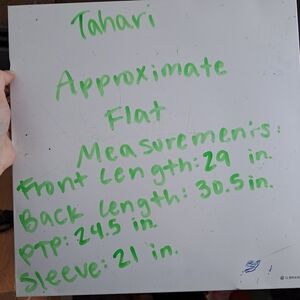 Tahari
Approximate
Flat
Measurements:
Front Length: 29 in.
Back Length: 30.5 in.
PTP: 24.5 in.
Sleeve: 21 in.